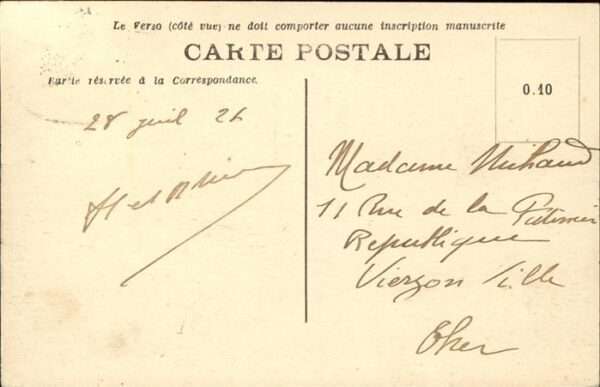 Le Verso (côté vue) ne doit comporter aucune inscription manuscrite
CARTE POSTALE
Partie réservée à la Correspondance.
0.10
28 juil 26
Madame Michaud
11 Rue de la
Republique
Vierzon Ville
Cher